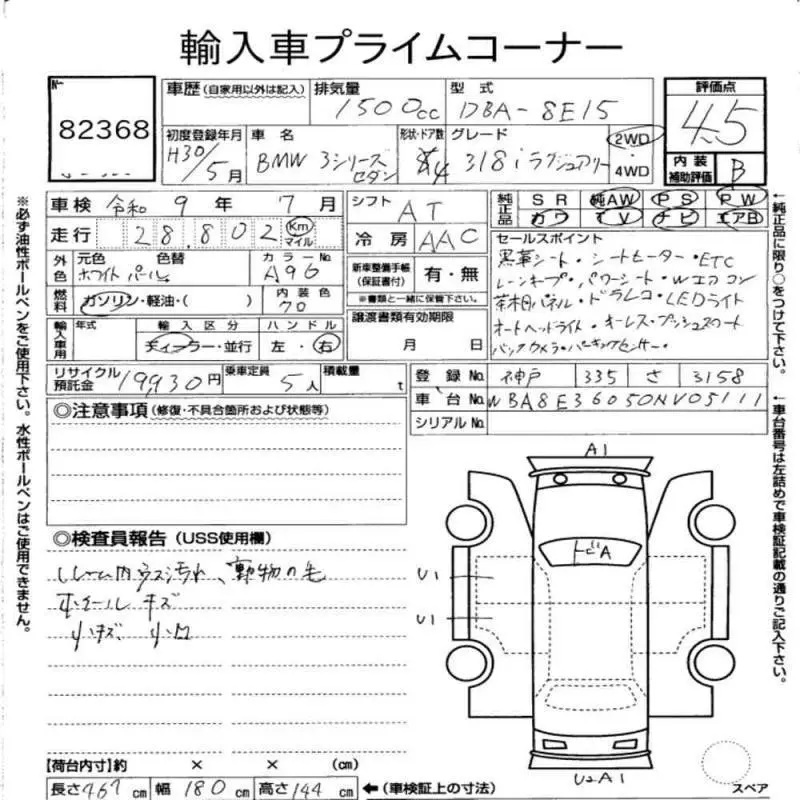 輸入車プライムコーナー
№ 82368
車歴 (自家用以外は記入)
排気量 1500cc
型式 DBA-8E15
評価点 4.5
初度登録年月 H30/5月
車名 BMW 3シリーズ セダン
形状・ドア数 4
グレード 318i ラグジュアリー
2WD ・ 4WD
内装補助評価 B
車検 令和 9年 7月
シフト AT
純正品 SR 純AW PS PW
カワ TV ナビ エアB
走行 28,802 Km マイル
冷房 AAC
セールスポイント
黒革シート・シートヒーター・ETC
レーンキープ・パワーシート・Wエアコン
茶木目パネル・ドラレコ・LEDライト
オートヘッドライト・キーレス・プッシュスタート
バックカメラ・パーキングセンサー・
外色 元色 ホワイトパール 色替
カラーNo. A96
新車整備手帳 (保証書付) 有・無
※書類と一緒に保管下さい。
燃料 ガソリン・軽油・( )
内装色 70
譲渡書類有効期限
月 日
輸入車用 年式
輸入区分 ディーラー・並行
ハンドル 左・右
リサイクル預託金 19930円
乗車定員 5人
積載量 t
登録No. 神戸 335 さ 3158
車台No. WBA8E36050NV05111
シリアルNo.
◎注意事項 (修復・不具合箇所および状態等)
◎検査員報告 (USS使用欄)
ルーム内ウスヨゴレ、動物の毛
ホイールキズ
小キズ 小凹
A1
トビA
U1
U1
U2A1
スペア
【荷台内寸】約 × × (cm)
長さ 467 cm 幅 180 cm 高さ 144 cm ←(車検証上の寸法)
※必ず油性ボールペンをご使用下さい。水性ボールペンはご使用できません。
←純正品に限り○をつけて下さい。
←車台番号は左詰めで車検証記載の通りご記入下さい。